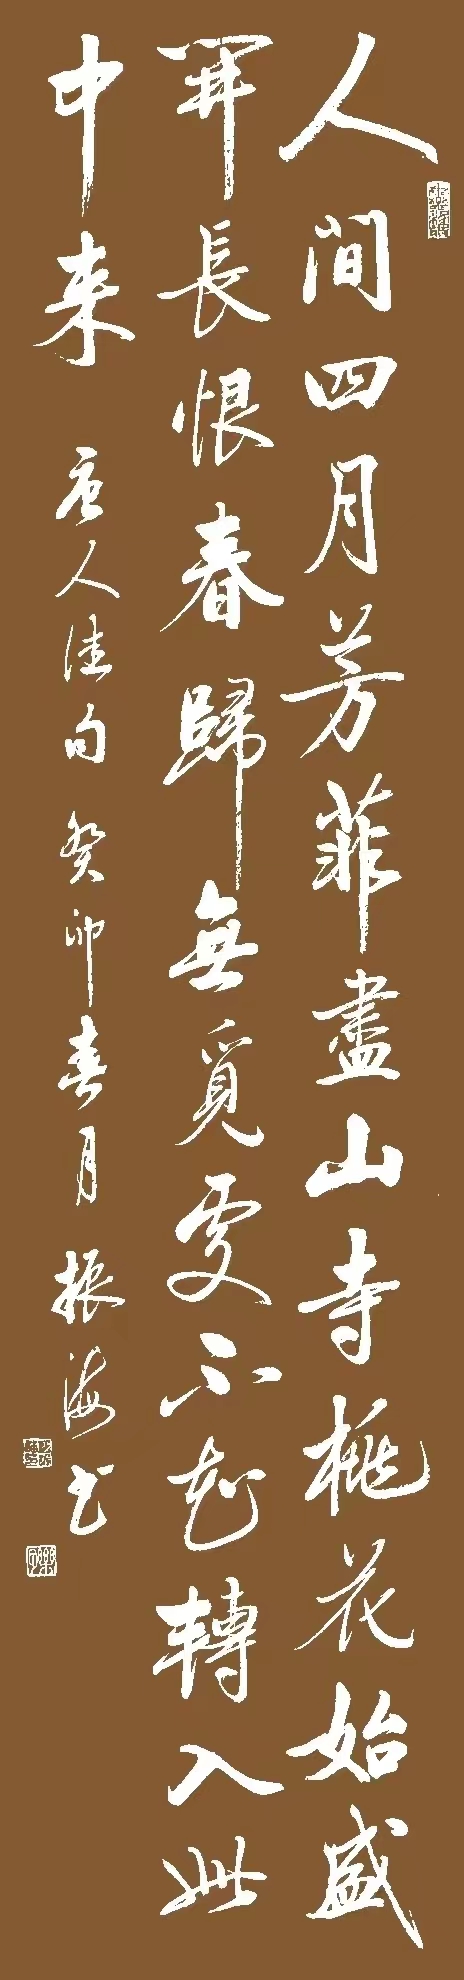 人間四月芳菲盡山寺桃花始盛
開長恨春歸無覓處不知轉入此
中来
唐人佳句 癸卯春月 振海书